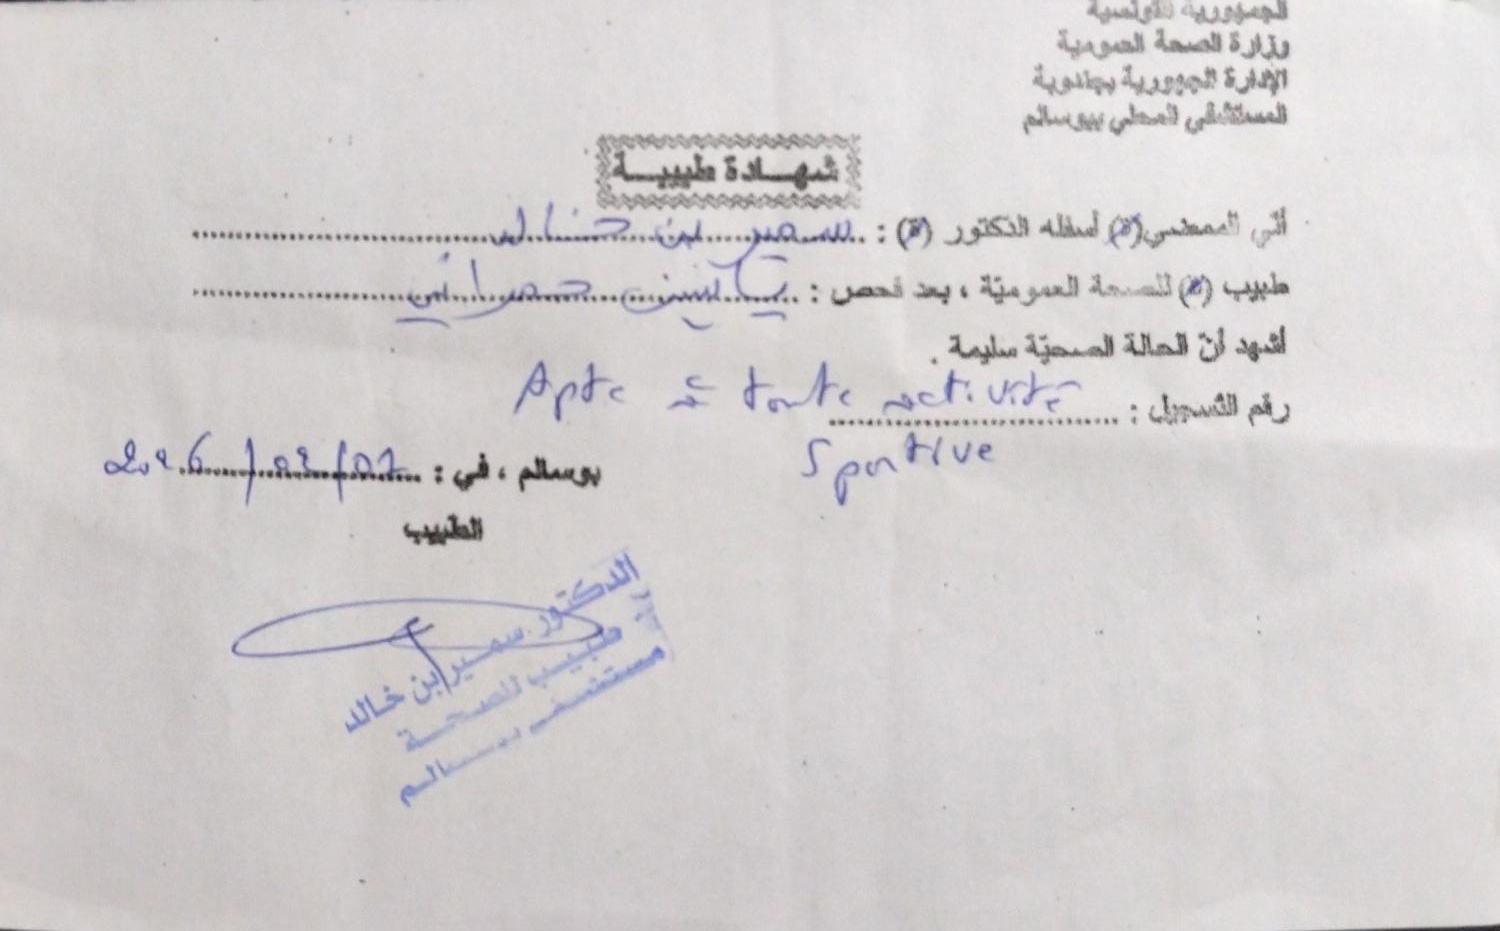 الجمهورية التونسية
وزارة الصحة العمومية
الإدارة الجهوية بجندوبة
المستشفى المحلي ببوسالم
شهادة طبيبة
أنّي الممضي(ة) أسفله الدكتور (ة) : سمير بن خالد
طبيب (ة) للصحة العموميّة ، بعد فحص : ياسين حمراني
أشهد أنّ الحالة الصحيّة سليمة .
Apte à toute activité
رقم التسجيل :
Sportive
بوسالم ، في : 2026/02/07
الطبيب
الدكتور سمير ابن خالد
طبيب للصحة
مستشفى بوسالم